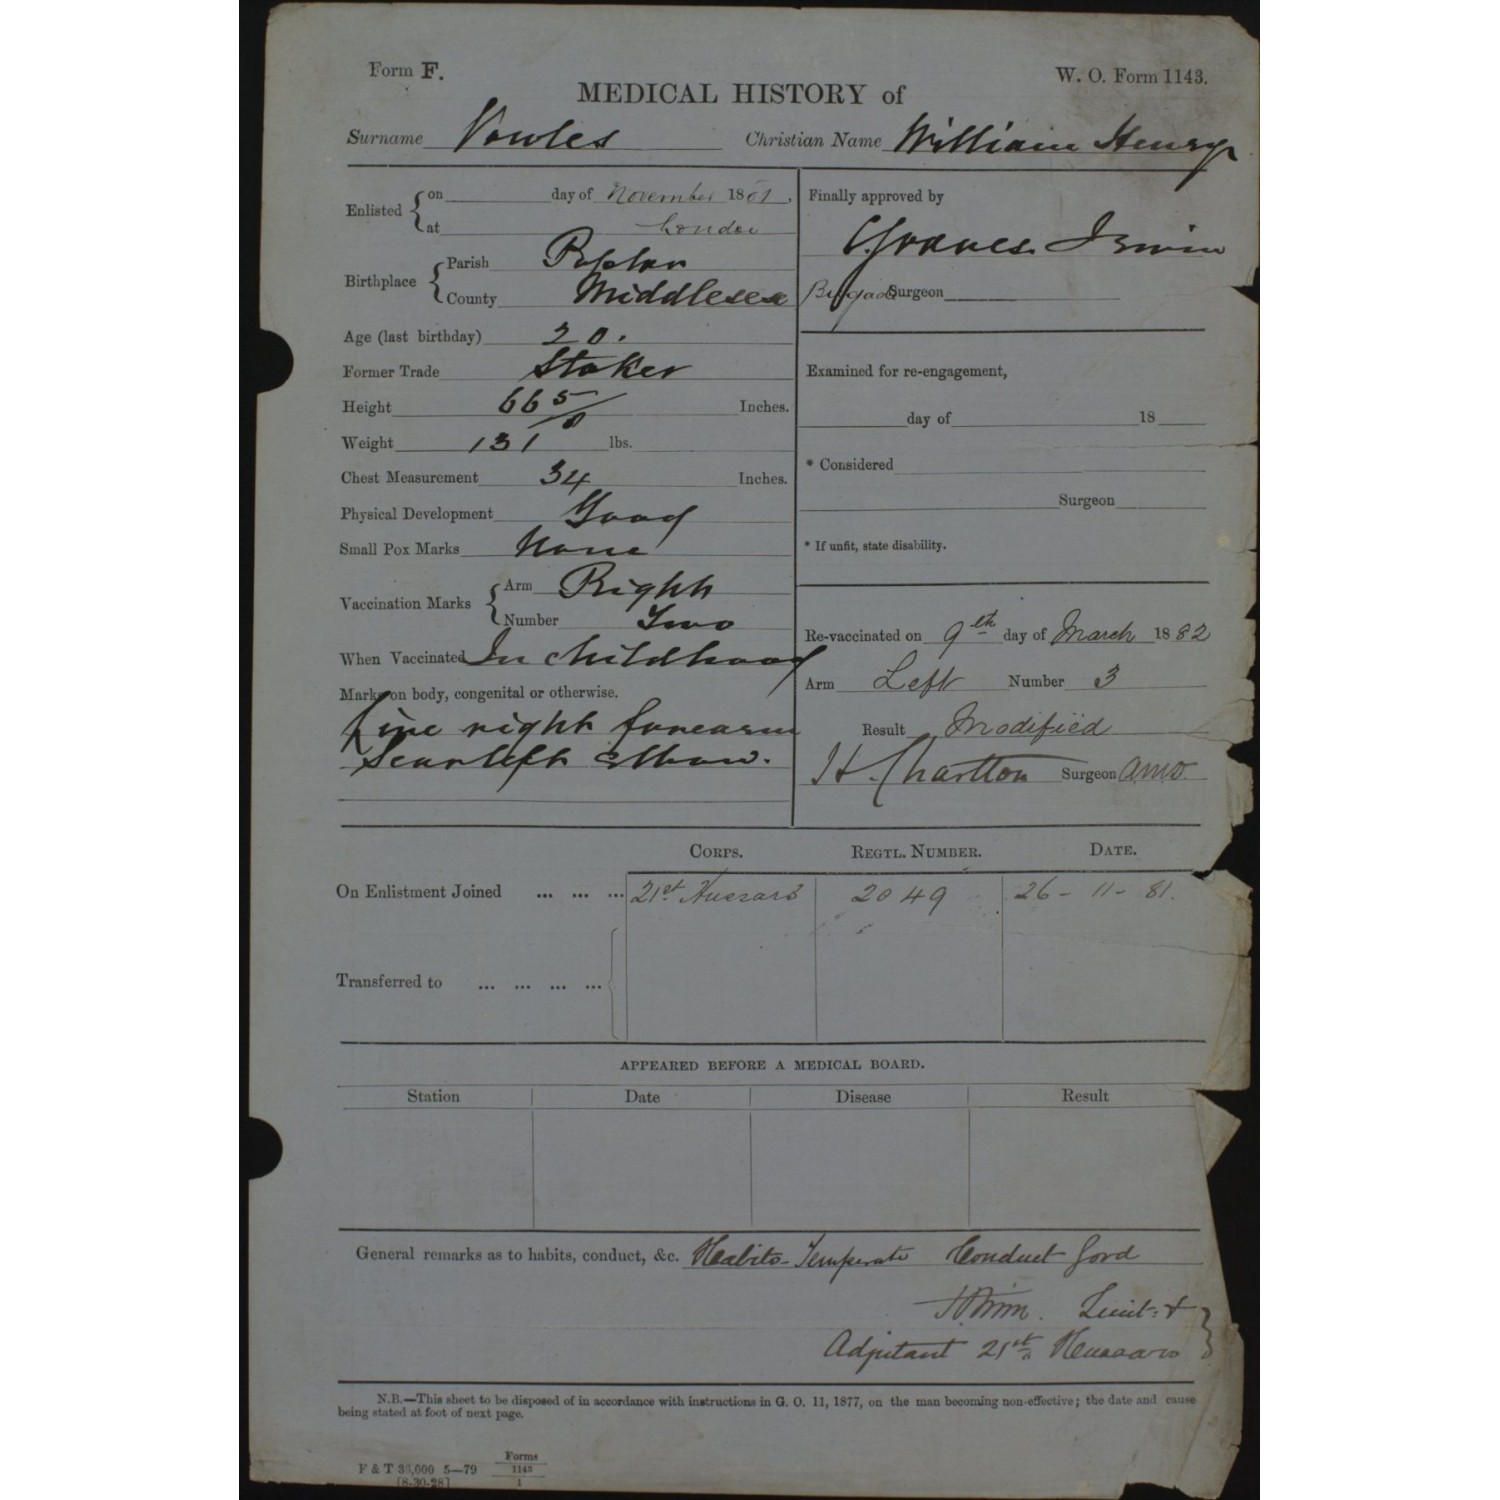 Form F.
W. O. Form 1143.
MEDICAL HISTORY of
Surname Vowles Christian Name William Henry
Enlisted { on day of November 1881,
at London
Birthplace { Parish Poplar
County Middlesex
Age (last birthday) 20.
Former Trade Stoker
Height 66 5/8 Inches.
Weight 131 lbs.
Chest Measurement 34 Inches.
Physical Development Good
Small Pox Marks None
Vaccination Marks { Arm Right
Number Two
When Vaccinated In childhood
Marks on body, congenital or otherwise.
right forearm
Scar left elbow.
Finally approved by
Graves Irwin
Brigade Surgeon
Examined for re-engagement,
day of 18
* Considered
Surgeon
* If unfit, state disability.
Re-vaccinated on 9th day of March 1882
Arm Left Number 3
Result Modified
H. Charlton Surgeon AMD
CORPS. REGTL. NUMBER. DATE.
On Enlistment Joined ... ... ... 21st Hussars 2049 26-11-81.
Transferred to ... ... ... ...
APPEARED BEFORE A MEDICAL BOARD.
Station Date Disease Result
General remarks as to habits, conduct, &c. Habits-Temperate Conduct Good
Lieut: &
Adjutant 21st Hussars
N.B.—This sheet to be disposed of in accordance with instructions in G. O. 11, 1877, on the man becoming non-effective; the date and cause
being stated at foot of next page.
F & T 30,000 5—79 Forms
[8-30-28] 1143
1